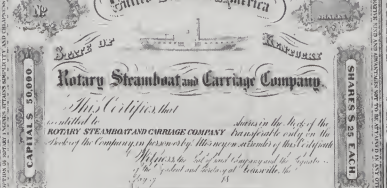 No
United States of America
SHARES
STATE OF KENTUCKY
Rotary Steamboat and Carriage Company.
CAPITALS 50,000
SHARES $ 25 EACH.
This Certifies, that
is entitled to shares in the Stock of the
ROTARY STEAMBOAT AND CARRIAGE COMPANY transferable only on the
Book of the Company, in person or by Attorney on surrender of this Certificate
Witness, the Seal of said Company and the Signatures
of the President and Secretary at Louisville, this
day of 18